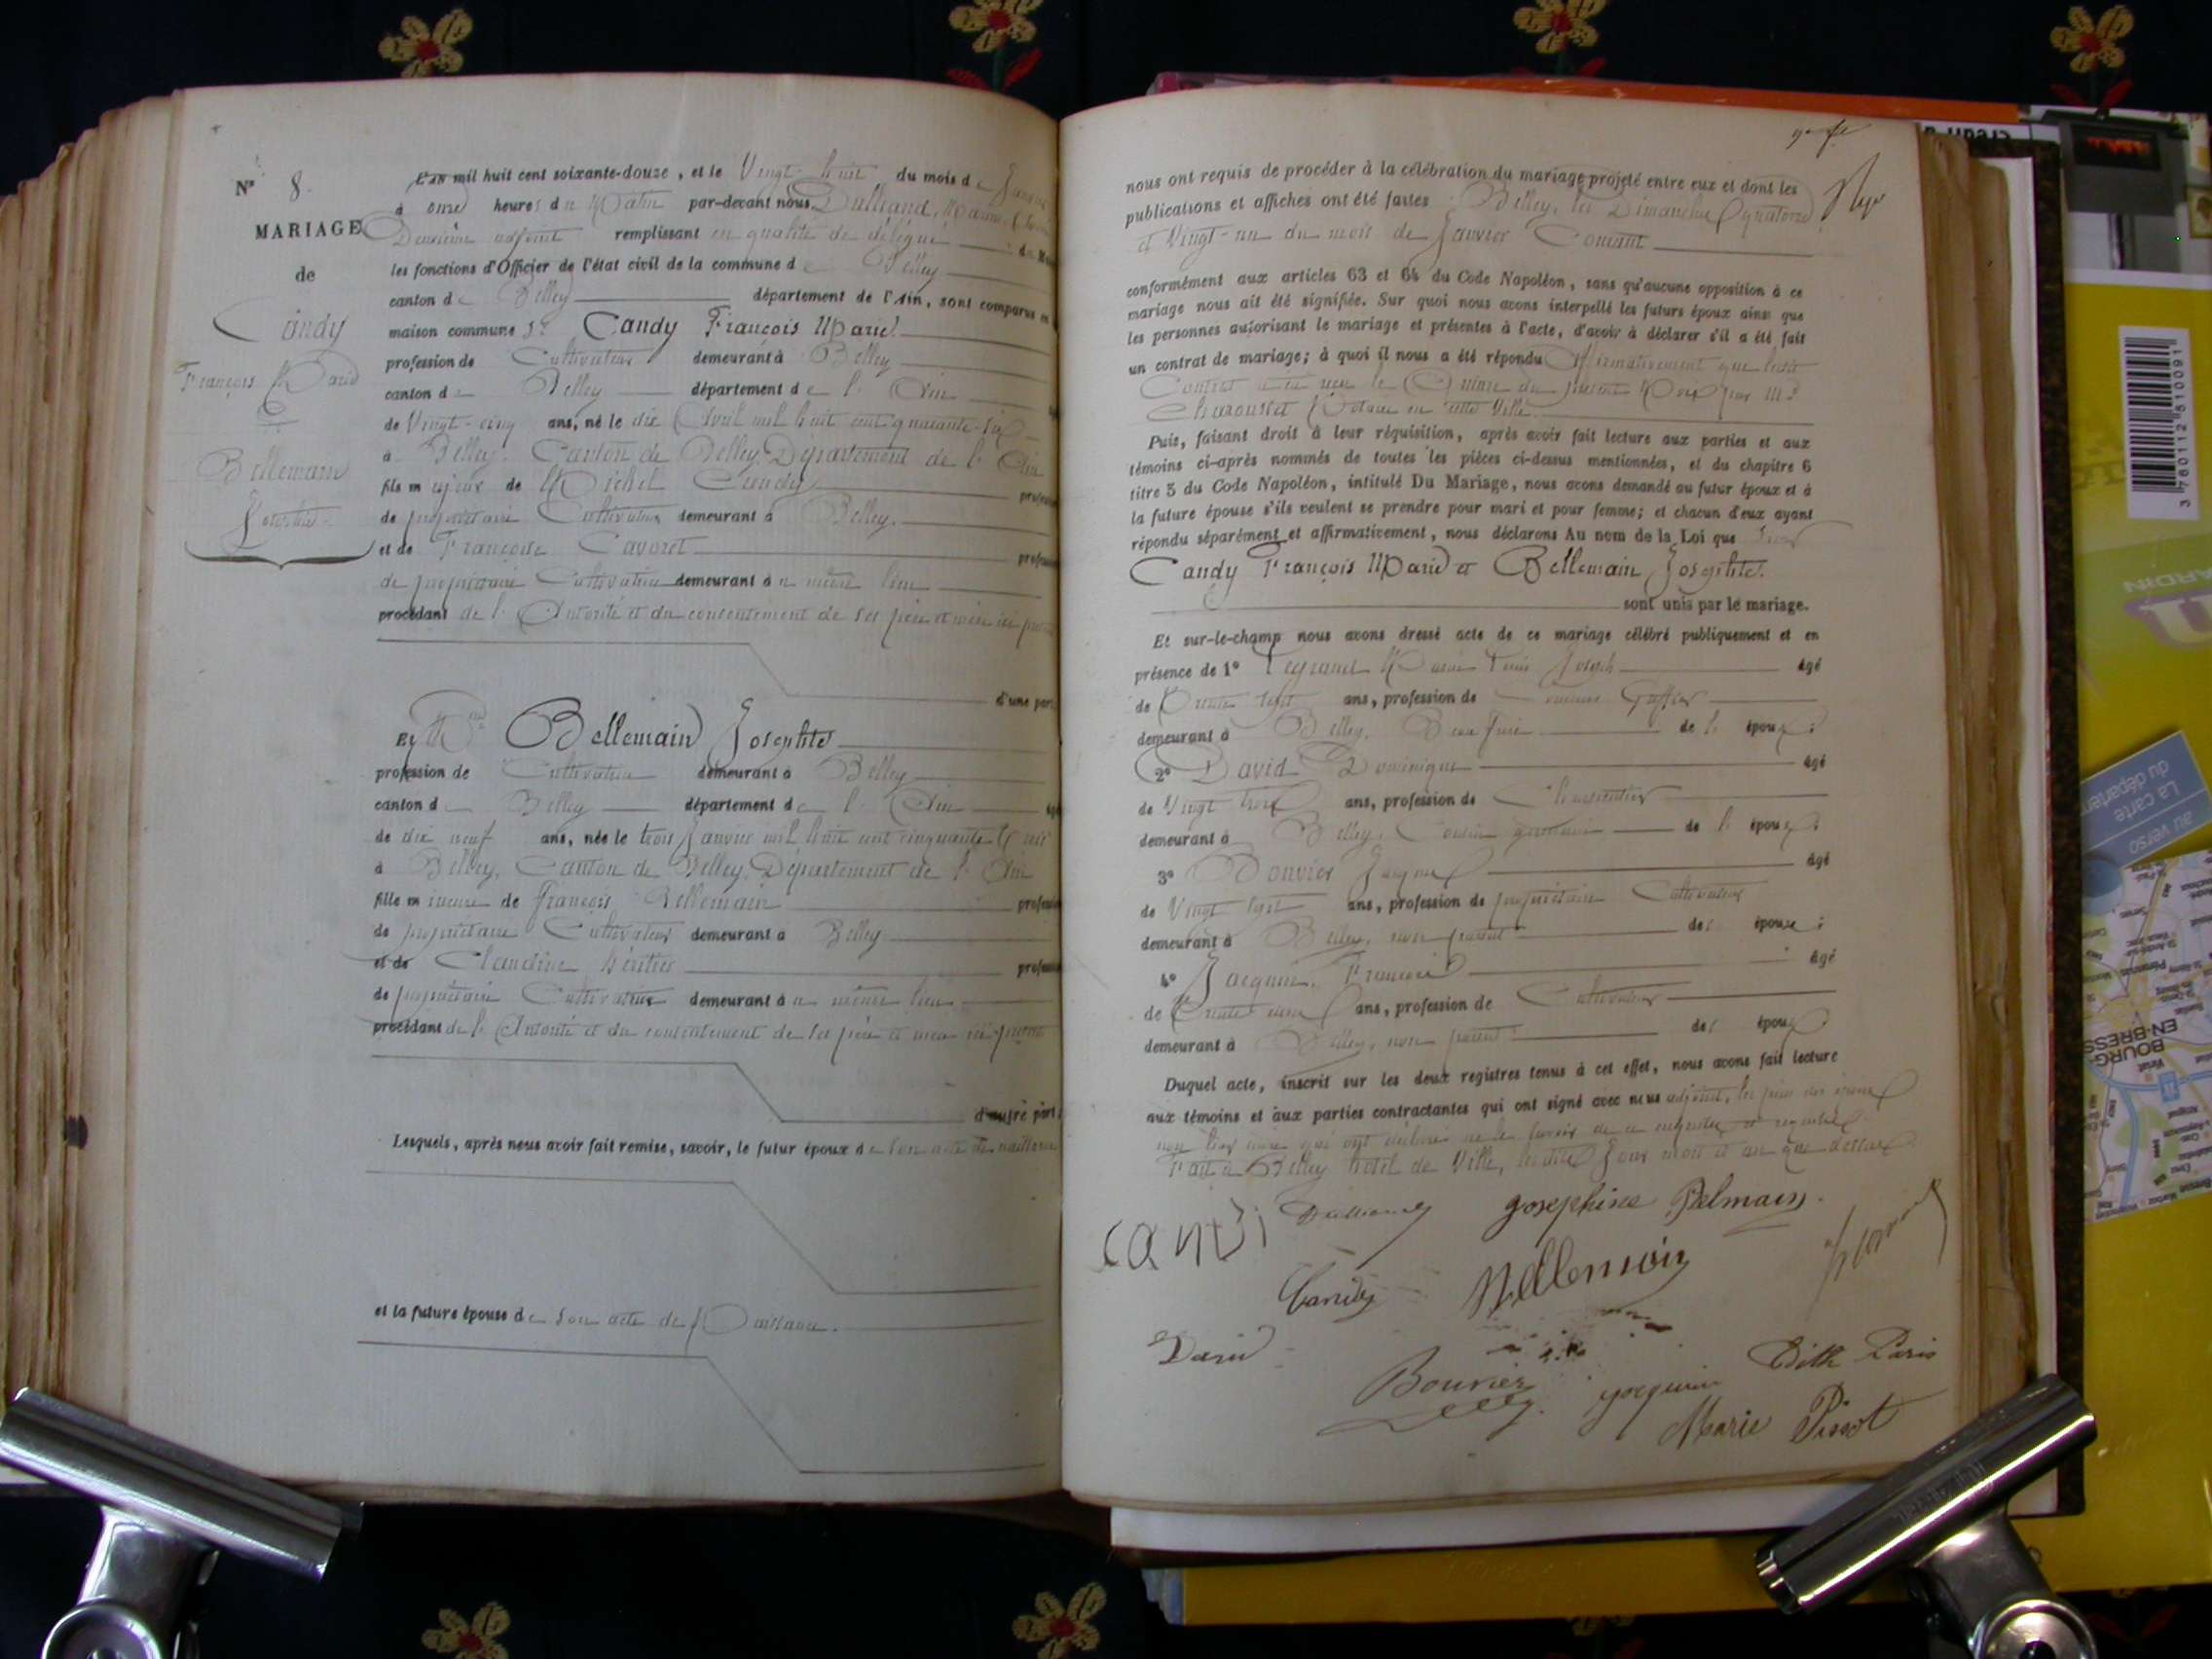 N° 8.
MARIAGE
de
Candy
François Marie
et
Bellemain
Josephte
L'an mil huit cent soixante-douze, et le Vingt-huit du mois de Janvier
à onze heures du Matin par-devant nous Dulliand,
Deuxième adjoint remplissant en qualité de délégué
les fonctions d'Officier de l'état civil de la commune de Belley
canton de Belley département de l'Ain, sont comparus en
maison commune Sr Candy François Marie
profession de Cultivateur demeurant à Belley
canton de Belley département de l'Ain
de Vingt-cinq ans, né le dix Avril mil huit cent quarante-six
à Belley, Canton de Belley, Département de l'Ain
fils majeur de Michel Candy
de propriétaire Cultivateur demeurant à Belley.
et de Françoise Cavoret
de propriétaire Cultivatrice demeurant à même lieu
procédant de l'Autorité et du consentement de ses père et mère ici
d'une part
Et Bellemain Josephte
profession de Cultivatrice demeurant à Belley
canton de Belley département de l'Ain
de dix neuf ans, née le trois Janvier mil huit cent cinquante
à Belley, Canton de Belley, Département de l'Ain
fille mineure de François Bellemain
de propriétaire Cultivateur demeurant à Belley
et de Claudine
de propriétaire Cultivatrice demeurant à même lieu
procédant de l'Autorité et du consentement de ses père et mère ici
d'autre part.
Lesquels, après nous avoir fait remise, savoir, le futur époux de son acte de naissance
et la future épouse de son acte de Naissance.
nous ont requis de procéder à la célébration du mariage projeté entre eux et dont les
publications et affiches ont été faites Belley, les Dimanches quatorze
et Vingt-un du mois de Janvier Courant
conformément aux articles 63 et 64 du Code Napoléon, sans qu'aucune opposition à ce
mariage nous ait été signifiée. Sur quoi nous avons interpellé les futurs époux ainsi que
les personnes autorisant le mariage et présentes à l'acte, d'avoir à déclarer s'il a été fait
un contrat de mariage; à quoi il nous a été répondu Affirmativement que ledit
Contrat a été reçu le Quinze du présent Mois par Me
Notaire en cette Ville.
Puis, faisant droit à leur réquisition, après avoir fait lecture aux parties et aux
témoins ci-après nommés de toutes les pièces ci-dessus mentionnées, et du chapitre 6
titre 5 du Code Napoléon, intitulé Du Mariage, nous avons demandé au futur époux et à
la future épouse s'ils veulent se prendre pour mari et pour femme; et chacun d'eux ayant
répondu séparément et affirmativement, nous déclarons Au nom de la Loi que
Candy François Marie et Bellemain Josephte.
sont unis par le mariage.
Et sur-le-champ nous avons dressé acte de ce mariage célébré publiquement et en
présence de 1° Joseph âgé
de Trente sept ans, profession de Greffier
demeurant à Belley, Beau frère de l'époux;
2° David Dominique âgé
de Vingt trois ans, profession de Charpentier
demeurant à Belley, Cousin germain de l'époux;
3° Bouvier âgé
de Vingt sept ans, profession de propriétaire Cultivateur
demeurant à Belley, non parent des époux;
4° Jacquin, François âgé
de Trente ans, profession de Cultivateur
demeurant à Belley, non parent des époux
Duquel acte, inscrit sur les deux registres tenus à cet effet, nous avons fait lecture
aux témoins et aux parties contractantes qui ont signé avec nous adjoint, les père des époux
non leur mère qui ont déclaré ne le savoir de ce enquises et requises
Fait à Belley hôtel de Ville, lesdits Jour mois et an que dessus
Dulliand
Josephine Belmain.
CANDi
Candy
Bellemain
David
Bouvier
Jacquin
Edith Paris
Marie Pissot
3 760112 610091
La carte
du département
au verso
BOURG-
EN-BRESSE